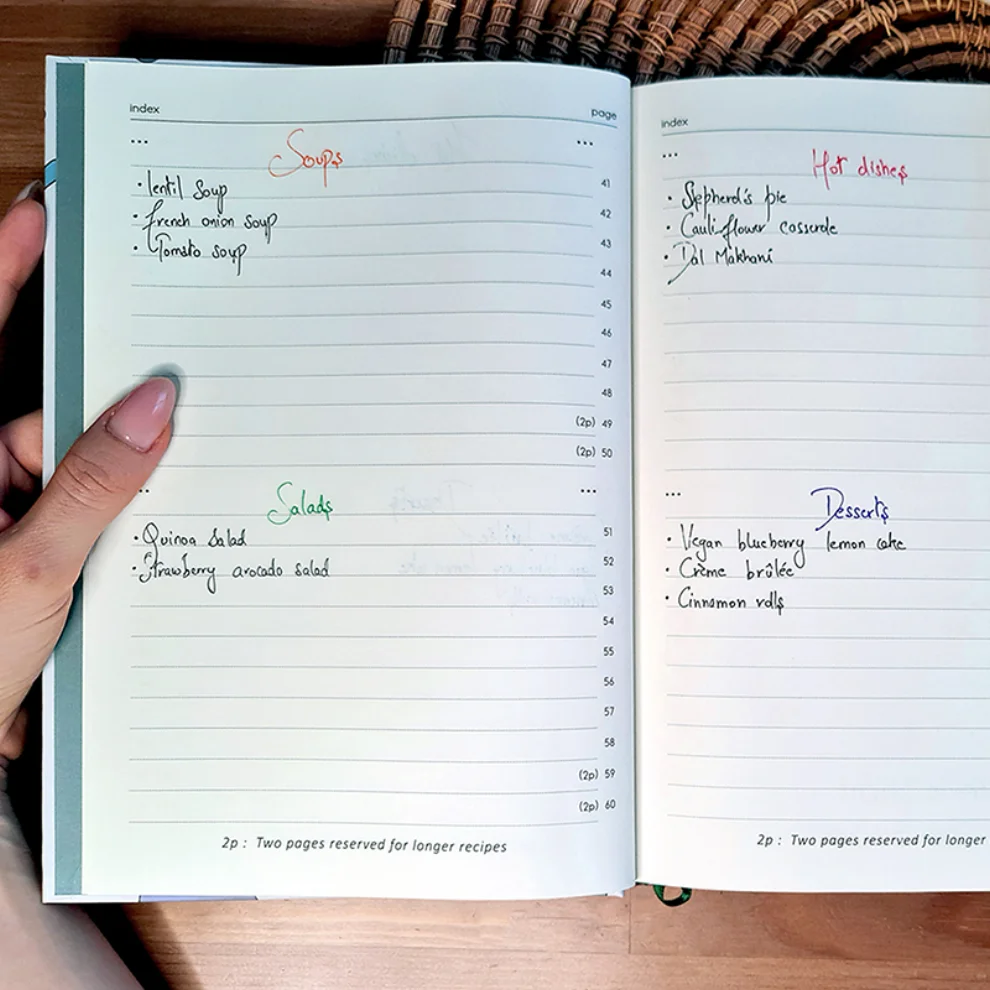 index page
... ...
Soups
• lentil soup 41
• french onion soup 42
• Tomato soup 43
44
45
46
47
48
(2p) 49
(2p) 50
... ...
Salads
• Quinoa Salad 51
• Strawberry avocado salad 52
53
54
55
56
57
58
(2p) 59
(2p) 60
2p : Two pages reserved for longer recipes
index
...
Hot dishes
• Sepherd's pie
• Cauliflower casserole
• Dal Makhani
...
Desserts
• Vegan blueberry lemon cake
• Crème brûlée
• Cinnamon rolls
2p : Two pages reserved for longer